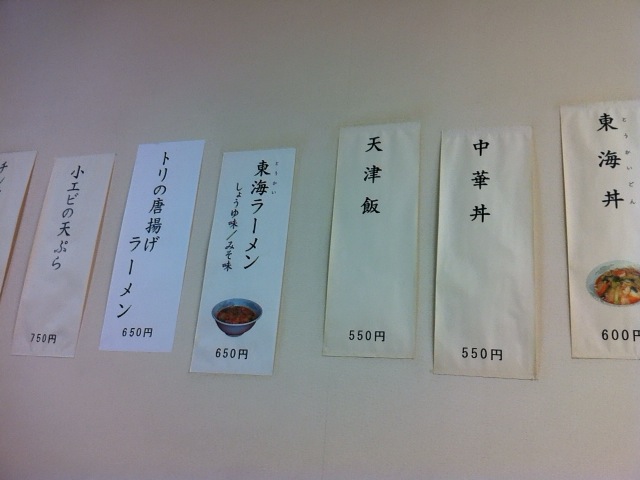 とうかいどん
東海丼
600円
中華丼
550円
天津飯
550円
とうかい
東海ラーメン
しょうゆ味/みそ味
650円
トリの唐揚げ
ラーメン
650円
小エビの天ぷら
750円